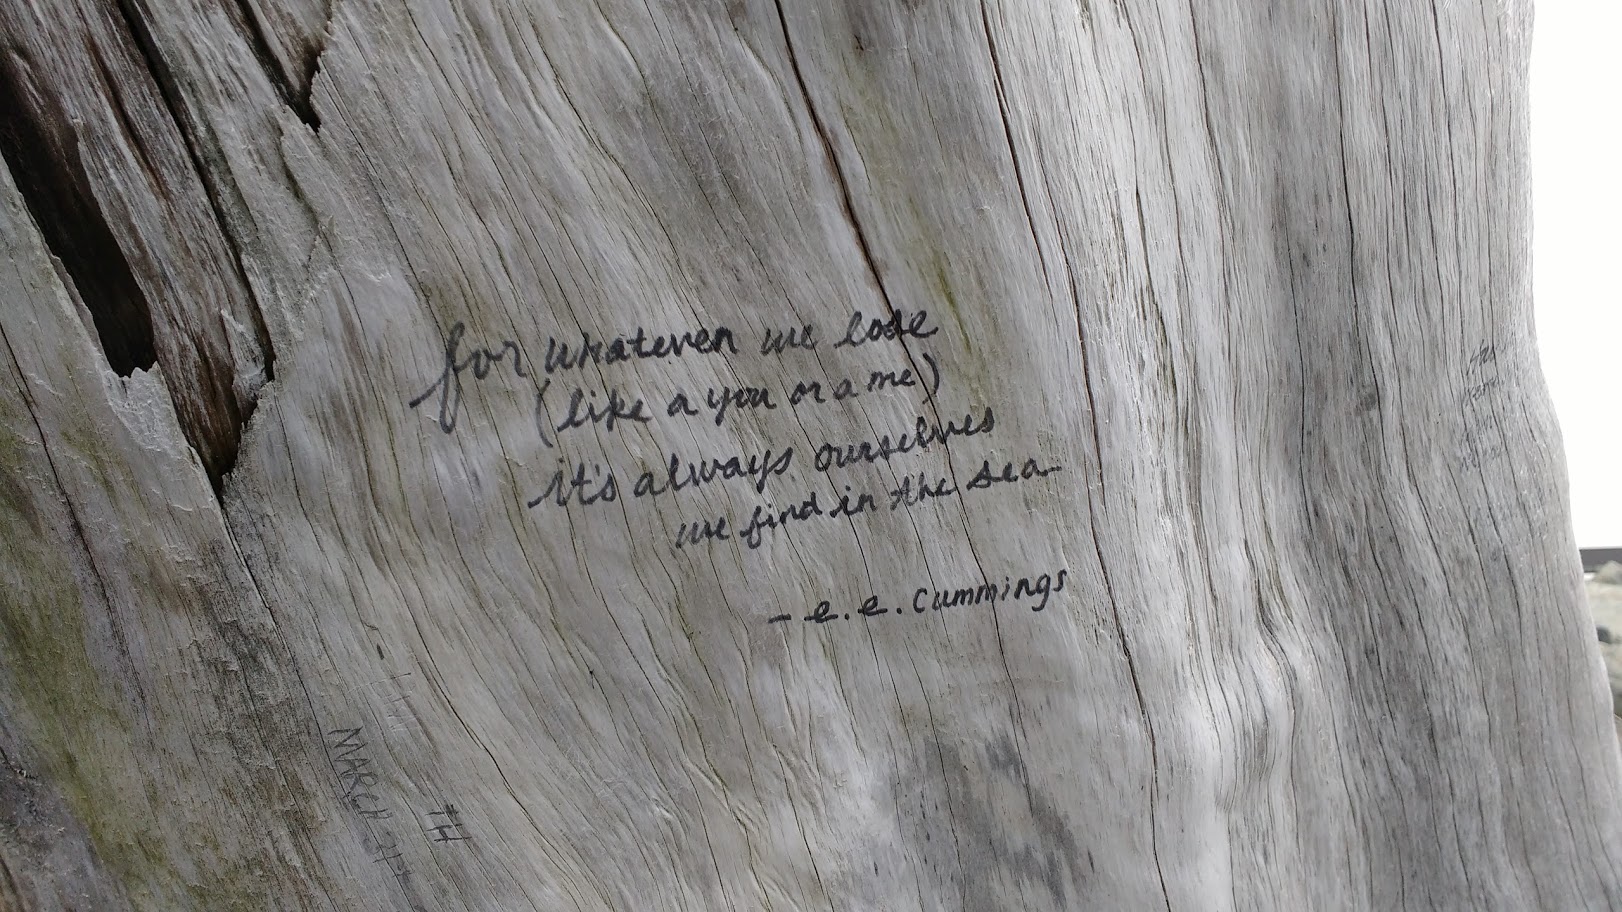 for whatever we lose
(like a you or a me)
it's always ourselves
we find in the sea
- e.e. cummings
MARCH
TH